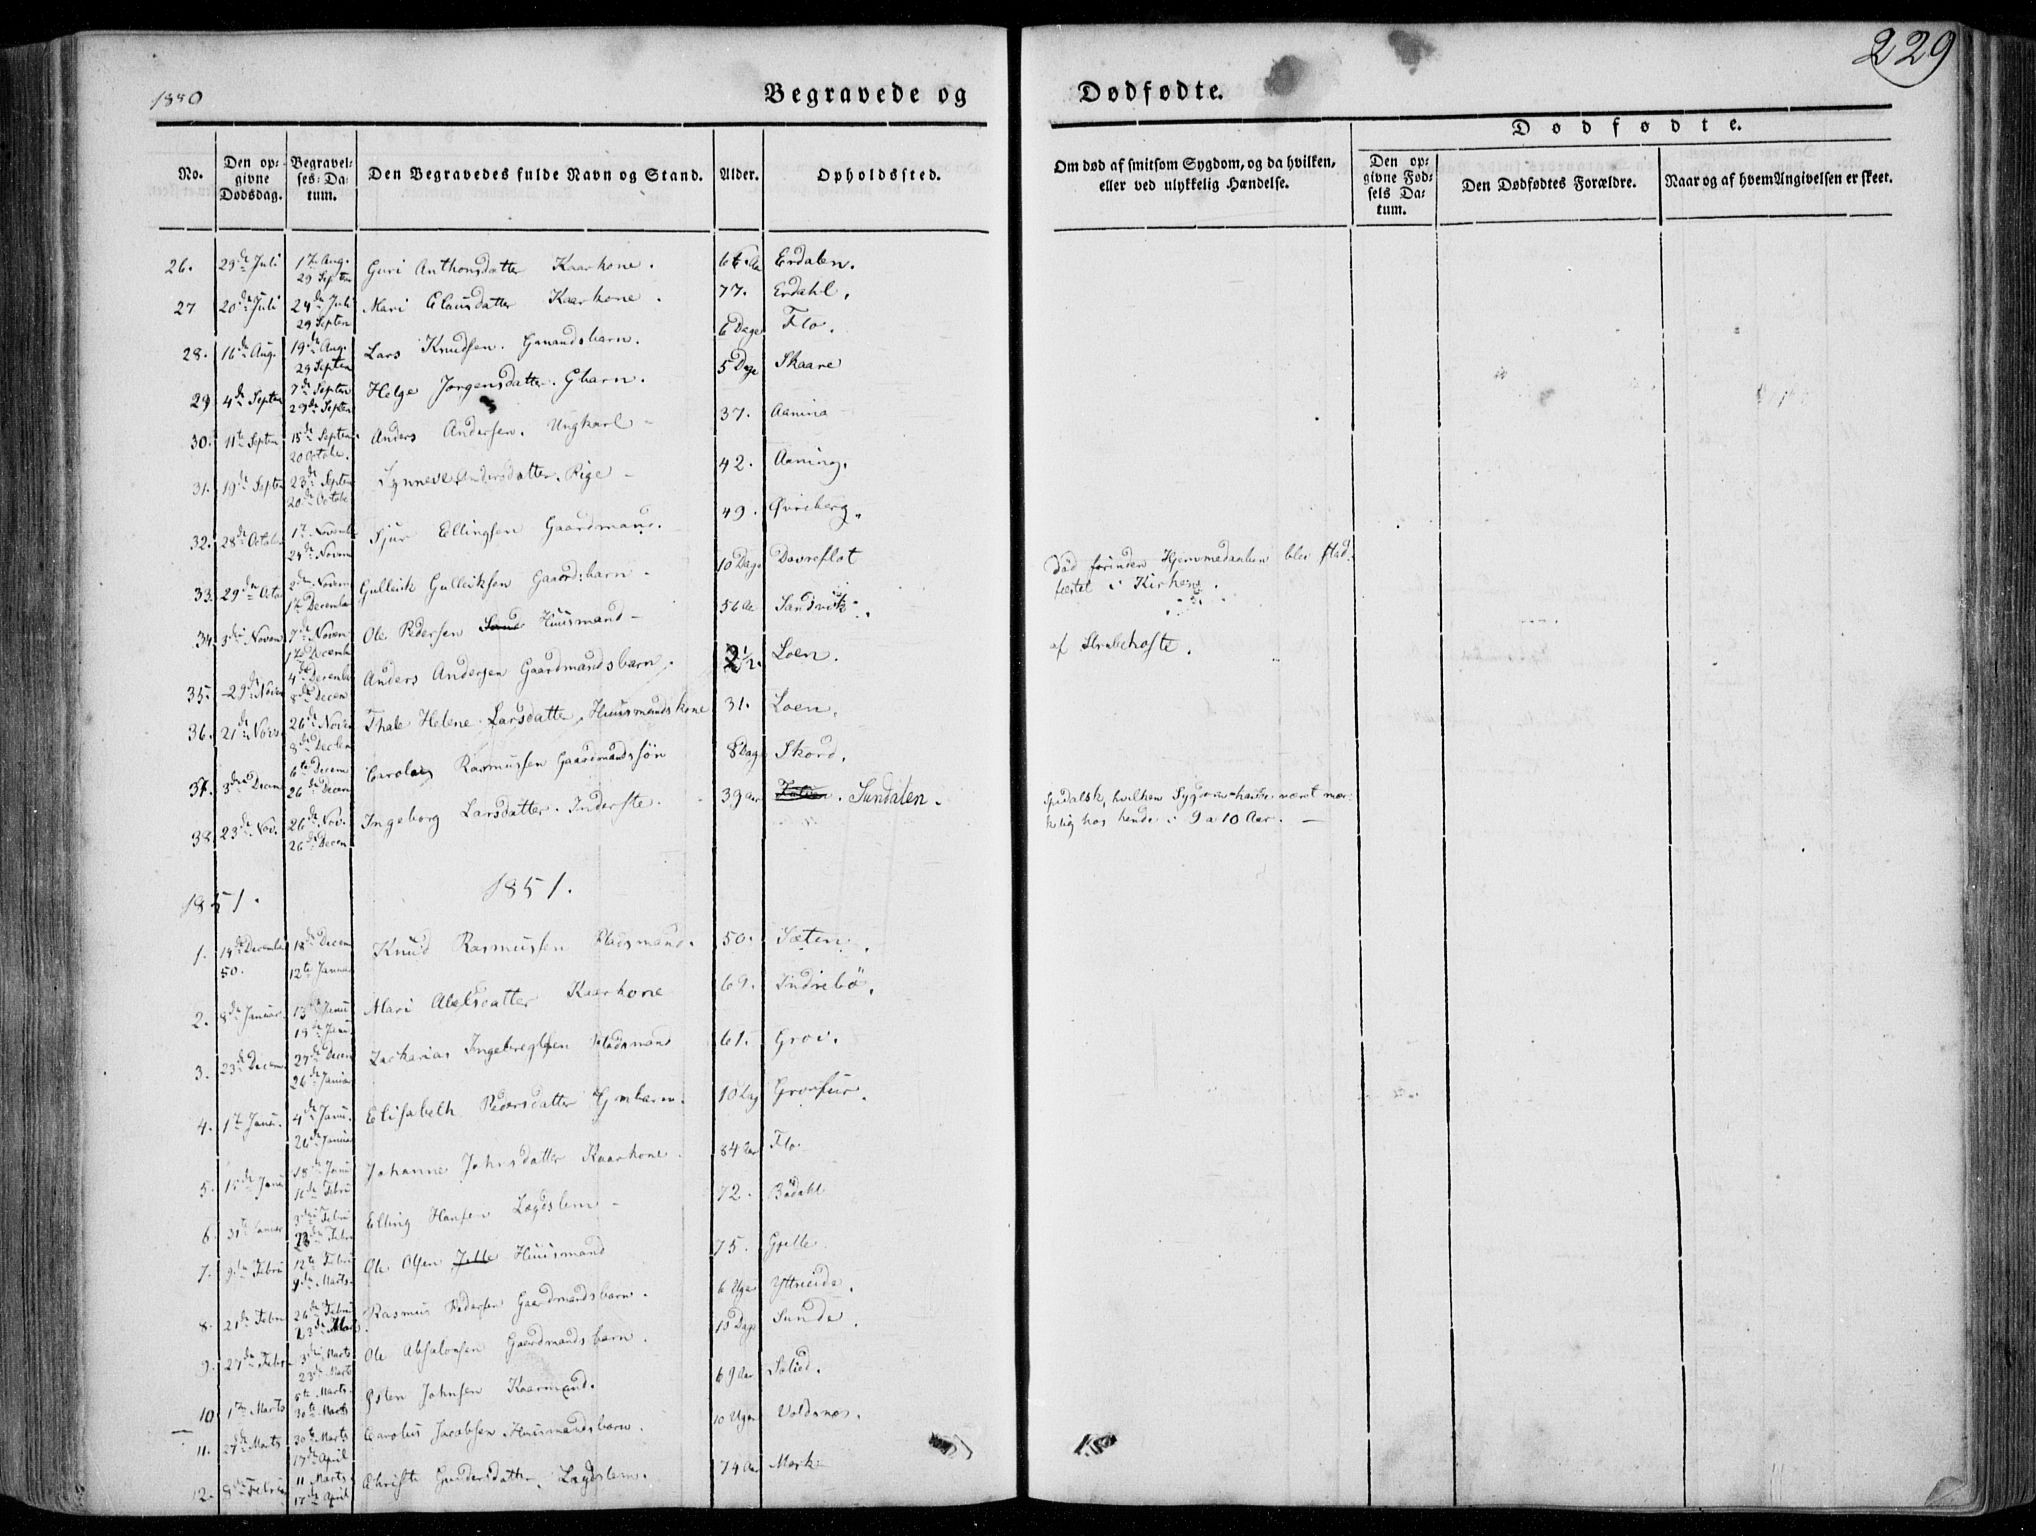 229
1850
Begravede og Dødfødte.
No. Den opgivne Dødsdag. Begravelses-Datum. Den Begravedes fulde Navn og Stand. Alder. Opholdssted. Om død af smitsom Sygdom, og da hvilken, eller ved ulykkelig Hændelse.
Dødfødte.
Den opgivne Fødsels Datum. Den Dødfødtes Forældre. Naar og af hvem Angivelsen er skeet.
26. 29de Juli 1te Aug. 29 Septen Guri Anthonsdatter Kaarkone. 66 Aar Erdalen.
27 20de Juli 24de Juli 29 Septen Mari Clausdatter Kaarkone. 77. Erdahl.
28. 16de Aug. 19de Aug. 29 Septen Lars Knudsen. Gmandsbarn. 6 Dage Flo.
29 4de Septen 7de Septen 29de Septen Helge Jørgensdatter. Gbarn. 5 Dage Skaare
30. 11te Septen 15de Septen 20 Octobe. Anders Andersen. Ungkarl - 37. Aaning
31. 19de Septen 23de Septen 20de Octobe Synneve Andersdatter. Pige - 42. Aaning.
32. 28de Octobe 1te Novembe 24de Noven Sjur Ellingsen Gaardmand. 49. Øvreberg.
33. 29de Octo 2den Novem 1te Decembe Gulleik Gulleiksen Gaardsbarn - 10 Dage Dovreflot Död forinden Hjemmedaaben blev stadfæstet i Kirken.
34. 3die Noven 7de Noven 1te Decemb Ole Pedersen Huusmand - 56 Aar Sandvik.
35. 29de Noven 4de Decembe 8de Decen Anders Andersen Gaardmandsbarn. 2 1/2. Loen. af Strubehoste.
36. 21de Nove 26de Nove 8de Decem Thale Helene Larsdatter, Huusmandskone 31. Loen.
37. 3die Decem 6te Decem 26de Decem Carolus Rasmussen Gaardmandssøn 8 Dage Skord.
38 23de Nov. 26de Nov. 26de Decem Ingeborg Larsdatter. Inderste. 39 Aar Sundalen. Spedalsk, hvilken Sygdom havde været mærkelig hos hende i 9 a 10 Aar. -
1851. 1851.
1. 14de Decembe 50. 18de Decem 12te Januar Knud Rasmussen Pladsmand. 50. Sæten.
2. 8de Januar 13de Janu 19de Janu. Mari Abelsdatter Kaarkone 69. Indrebö.
3. 23de Decem 27de Decem 26de Januar Zacharias Ingebregtsen Pladsmand 61. Groi.
4. 1te Janu. 4de Janu. 26de Januar Elisabeth Pedersdatter Gmbarn. 10 Dag Gronfur.
5. 15de Janu 18de Janu 16de Febru Johanne Johnsdatter Kaarkone. 84 Aar Flo
6. 31te Januar 3die Febru 23de Febr Elling Hansen Lægdslem - 72. Bödahl
7. 9de Febru 12te Febru 9de Marts Ole Olsen Jelle Huusmand 75. Gjelle
8. 21de Febru 26de Febru 23de Mar Rasmus Pedersen Gaardmandsbarn. 6 Uger Yttreeide.
9. 27de Febr 3die Marts 23de Mart Ole Absalonsen Gaardmandsbarn. 15 Dage Sunde.
10. 1te Marts 5te Marts 30te Marts Østen Johnsen Kaarmand. 69 Aar Solied.
11. 27de Marts 30te Marts 17de April Carolus Jacobsen Huusmandsbarn. 10 Uger Voldsnes.
12. 8de Februa 11 Marts 17de April Christi Gundersdatter, Lægdslem. 74 Aar Mork